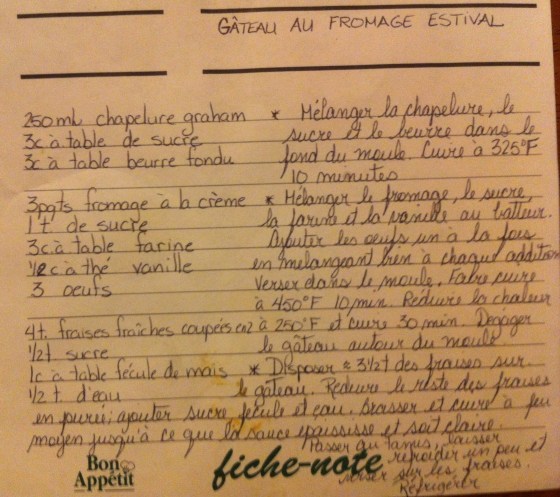 GÂTEAU AU FROMAGE ESTIVAL
250 ml chapelure graham * Mélanger la chapelure, le
3c à table de sucre sucre et le beurre dans le
3c à table beurre fondu fond du moule. Cuire à 325°F
10 minutes
3pqts fromage à la crème * Mélanger le fromage, le sucre,
1 t. de sucre la farine et la vanille au batteur.
3c. à table farine Ajouter les oeufs un à la fois
1/2 c à thé vanille en mélangeant bien à chaque addition
3 oeufs verser dans le moule. Faire cuire
à 450°F 10 min. Réduire la chaleur
4t. fraises fraîches coupées en 2 à 250°F et cuire 30 min. Dégager
1/2 t sucre le gâteau autour du moule
1c à table fécule de maïs * Disposer ≈ 3 1/2 t des fraises sur
1/2 t. d'eau le gâteau. Réduire le reste des fraises
en purée; ajouter sucre, fécule et eau. Brasser et cuire à feu
moyen jusqu'à ce que la sauce épaississe et soit claire.
Passer au tamis, laisser
refroidir un peu et
verser sur les fraises.
Réfrigérer
Bon
Appétit
fiche-note